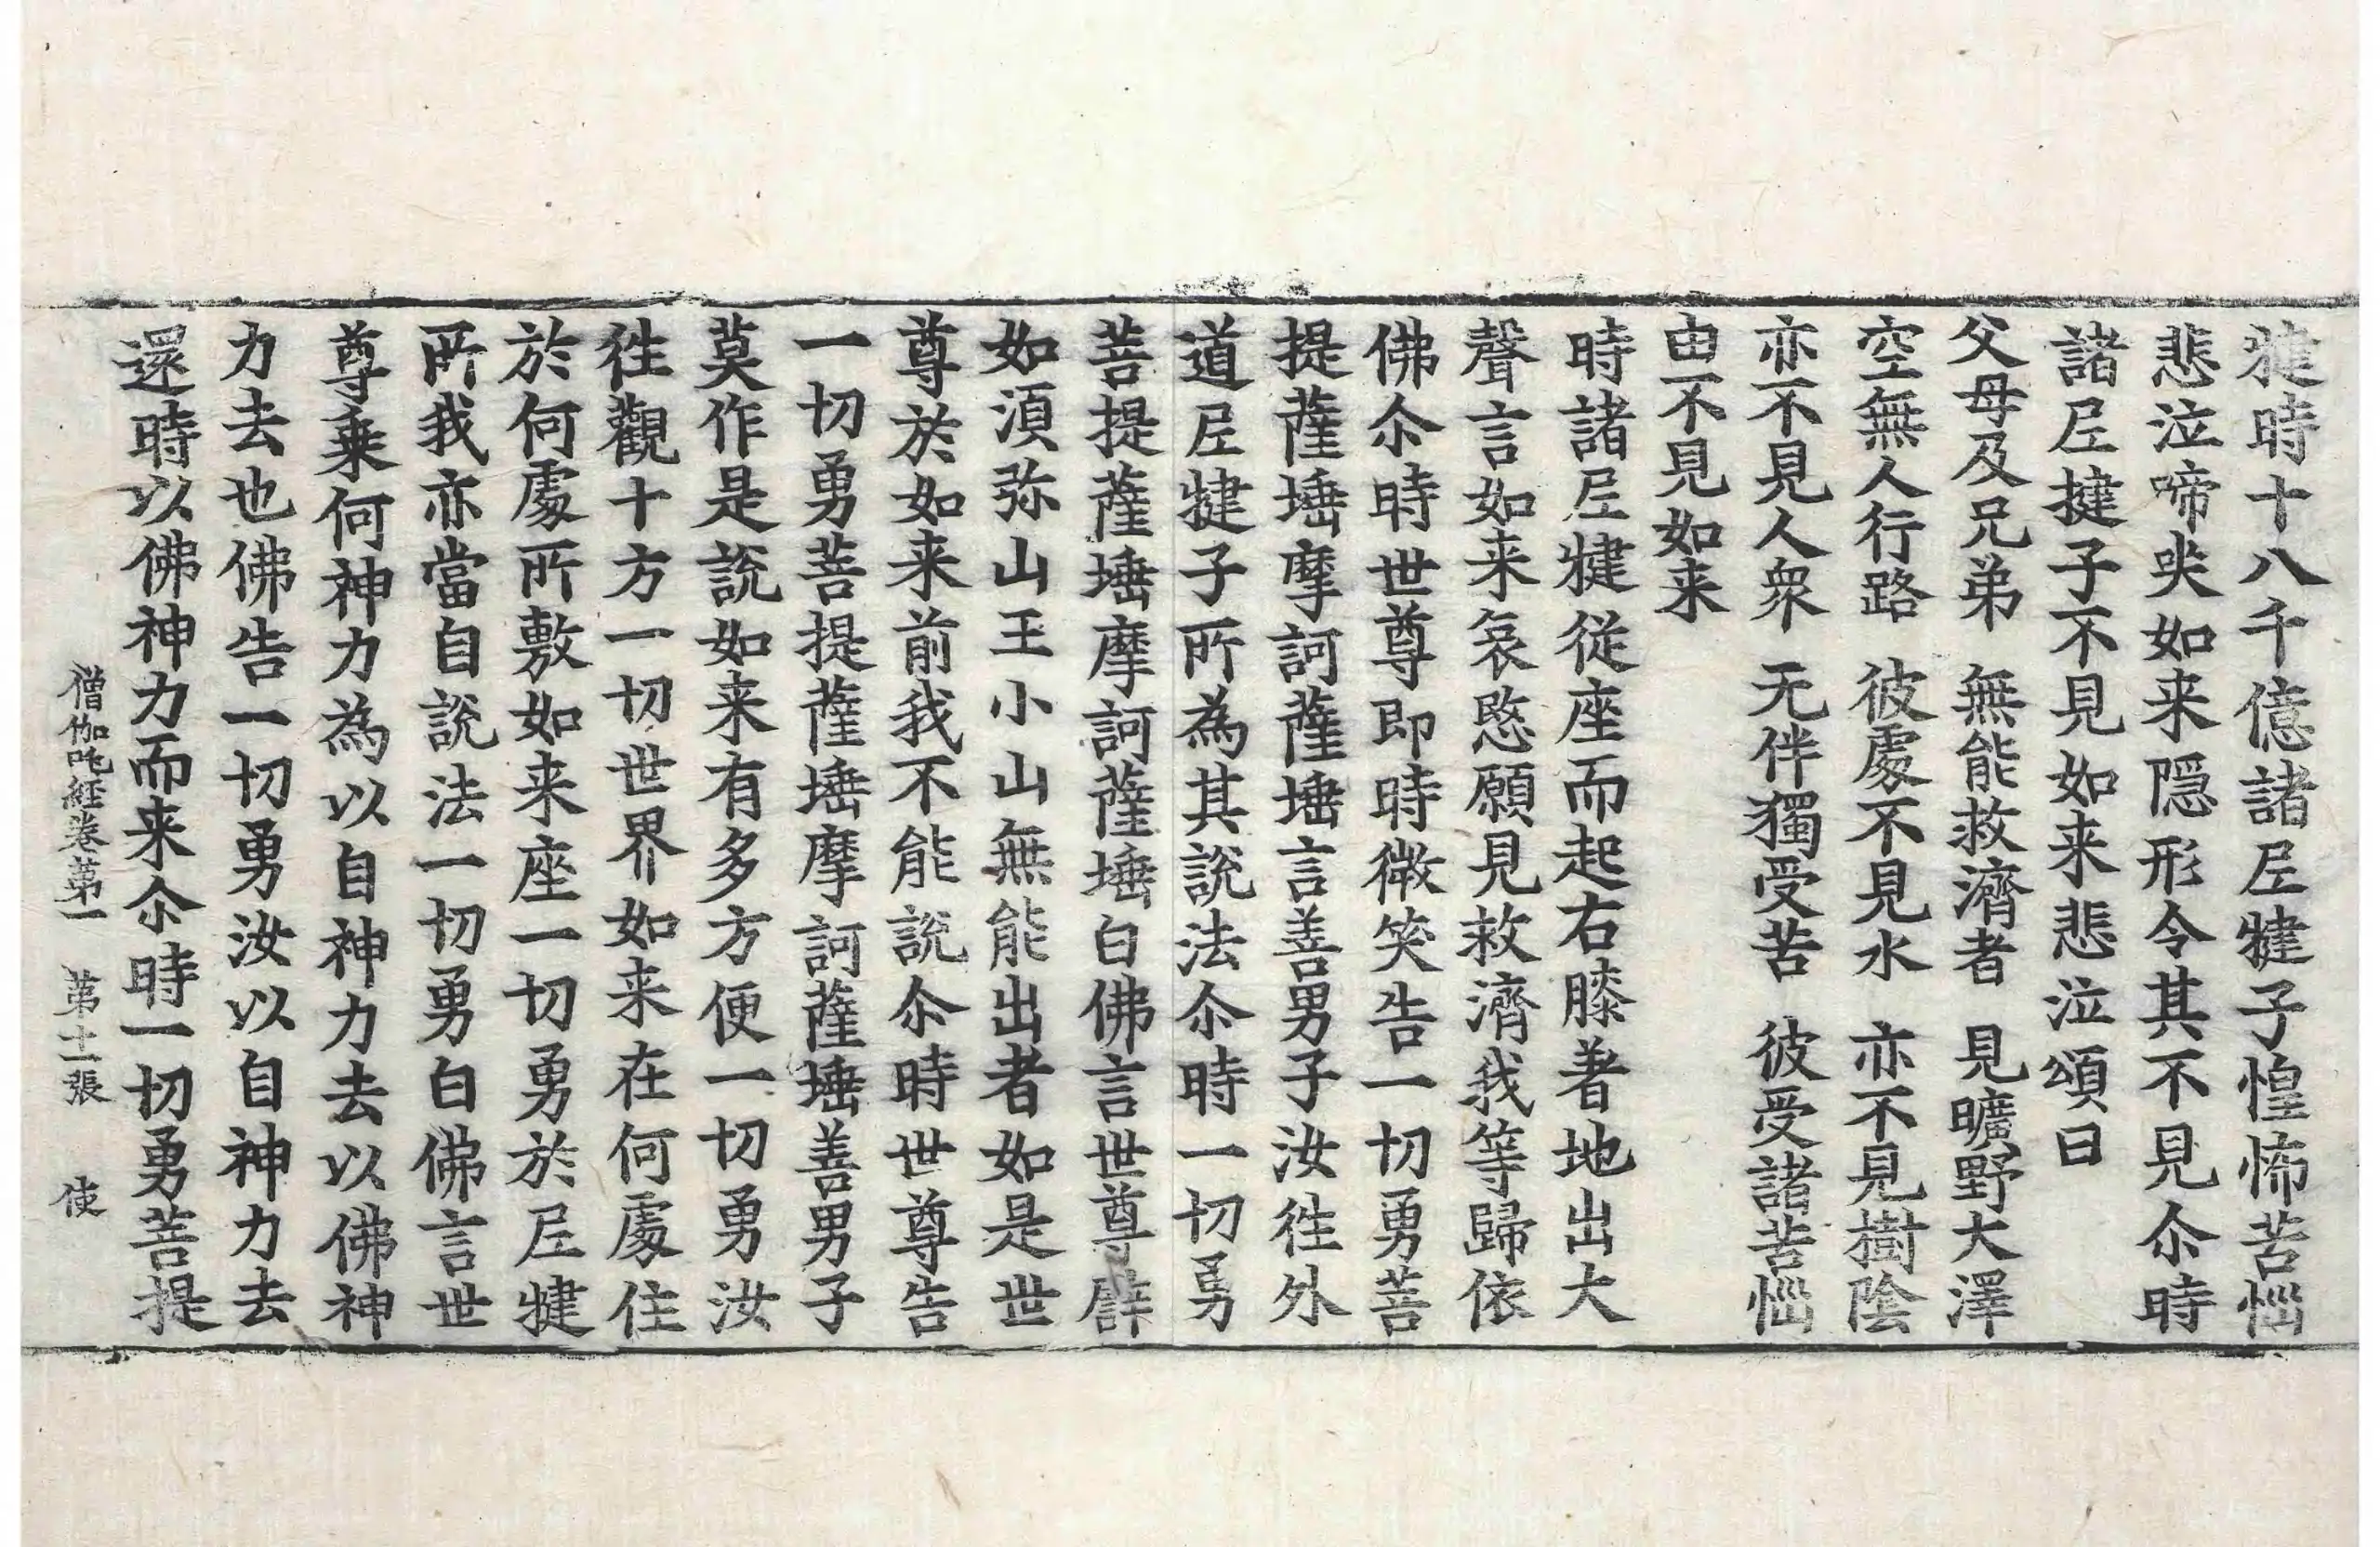 揵時十八千億諸尼揵子惶怖苦惱
悲泣啼哭如来隱形令其不見尒時
諸尼揵子不見如来悲泣頌曰
父母及兄弟　無能救濟者　見曠野大澤
空無人行路　彼處不見水　亦不見樹陰
亦不見人衆　无伴獨受苦　彼受諸苦惱
由不見如来
時諸尼揵從座而起右膝著地出大
聲言如来哀愍願見救濟我等歸依
佛尒時世尊即時微笑告一切勇菩
提薩埵摩訶薩埵言善男子汝往外
道尼揵子所為其說法尒時一切勇
菩提薩埵摩訶薩埵白佛言世尊譬
如須弥山王小山無能出者如是世
尊於如来前我不能說尒時世尊告
一切勇菩提薩埵摩訶薩埵善男子
莫作是說如来有多方便一切勇汝
往觀十方一切世界如来在何處住
於何處所敷如来座一切勇於尼揵
所我亦當自說法一切勇白佛言世
尊乗何神力為以自神力去以佛神
力去也佛告一切勇汝以自神力去
還時以佛神力而来尒時一切勇菩提
僧伽吒経卷第一　第十二張　使